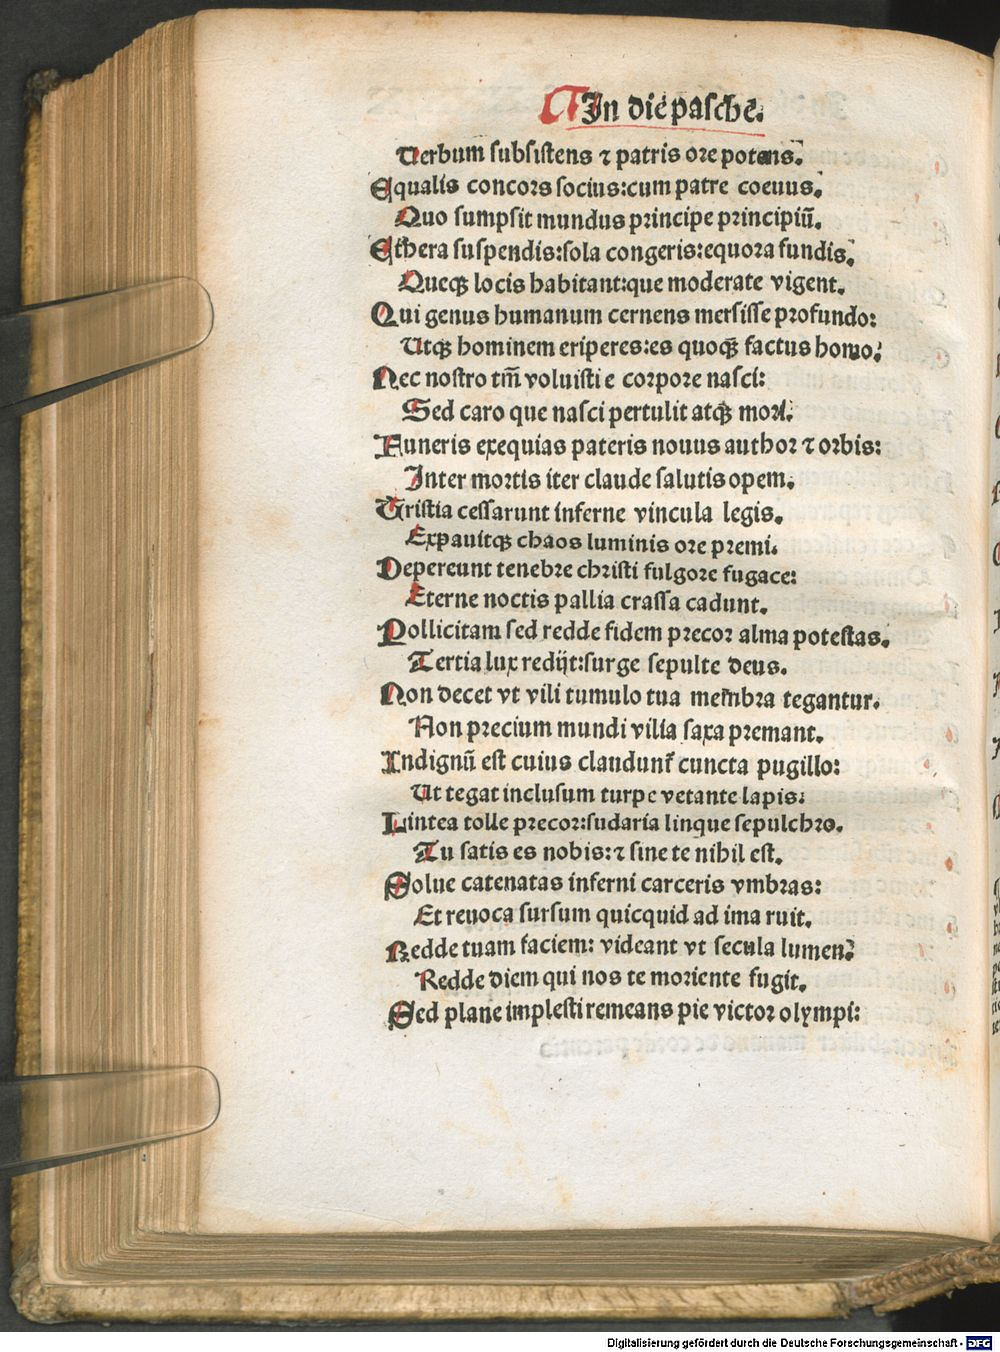 In die pasche.
Uerbum subsistens ⁊ patris ore potens.
Equalis concors socius:cum patre coeuus.
Quo sumpsit mundus principe principiū.
Ethera suspendis:sola congeris:equora fundis.
Queqꝫ locis habitant:que moderate vigent.
Qui genus humanum cernens mersisse profundo:
Utqꝫ hominem eriperes:es quoqꝫ factus homo.
Nec nostro tm̄ voluisti e corpore nasci:
Sed caro que nasci pertulit atqꝫ mori.
Funeris exequias pateris nouus author ⁊ orbis:
Inter mortis iter claude salutis opem.
Tristia cessarunt inferne vincula legis.
Expauitqꝫ chaos luminis ore premi.
Depereunt tenebre christi fulgore fugace:
Eterne noctis pallia crassa cadunt.
Pollicitam sed redde fidem precor alma potestas.
Tertia lux redijt:surge sepulte deus.
Non decet vt vili tumulo tua membra tegantur.
Non precium mundi vilia saxa premant.
Indignū est cuius claudunt᷑ cuncta pugillo:
Ut tegat inclusum turpe vetante lapis:
Lintea tolle precor:sudaria linque sepulchro.
Tu satis es nobis:⁊ sine te nihil est.
Solue catenatas inferni carceris vmbras:
Et reuoca sursum quicquid ad ima ruit.
Redde tuam faciem: videant vt secula lumen:
Redde diem qui nos te moriente fugit.
Sed plane implesti remeans pie victor olympi:
Digitalisierung gefördert durch die Deutsche Forschungsgemeinschaft - DFG